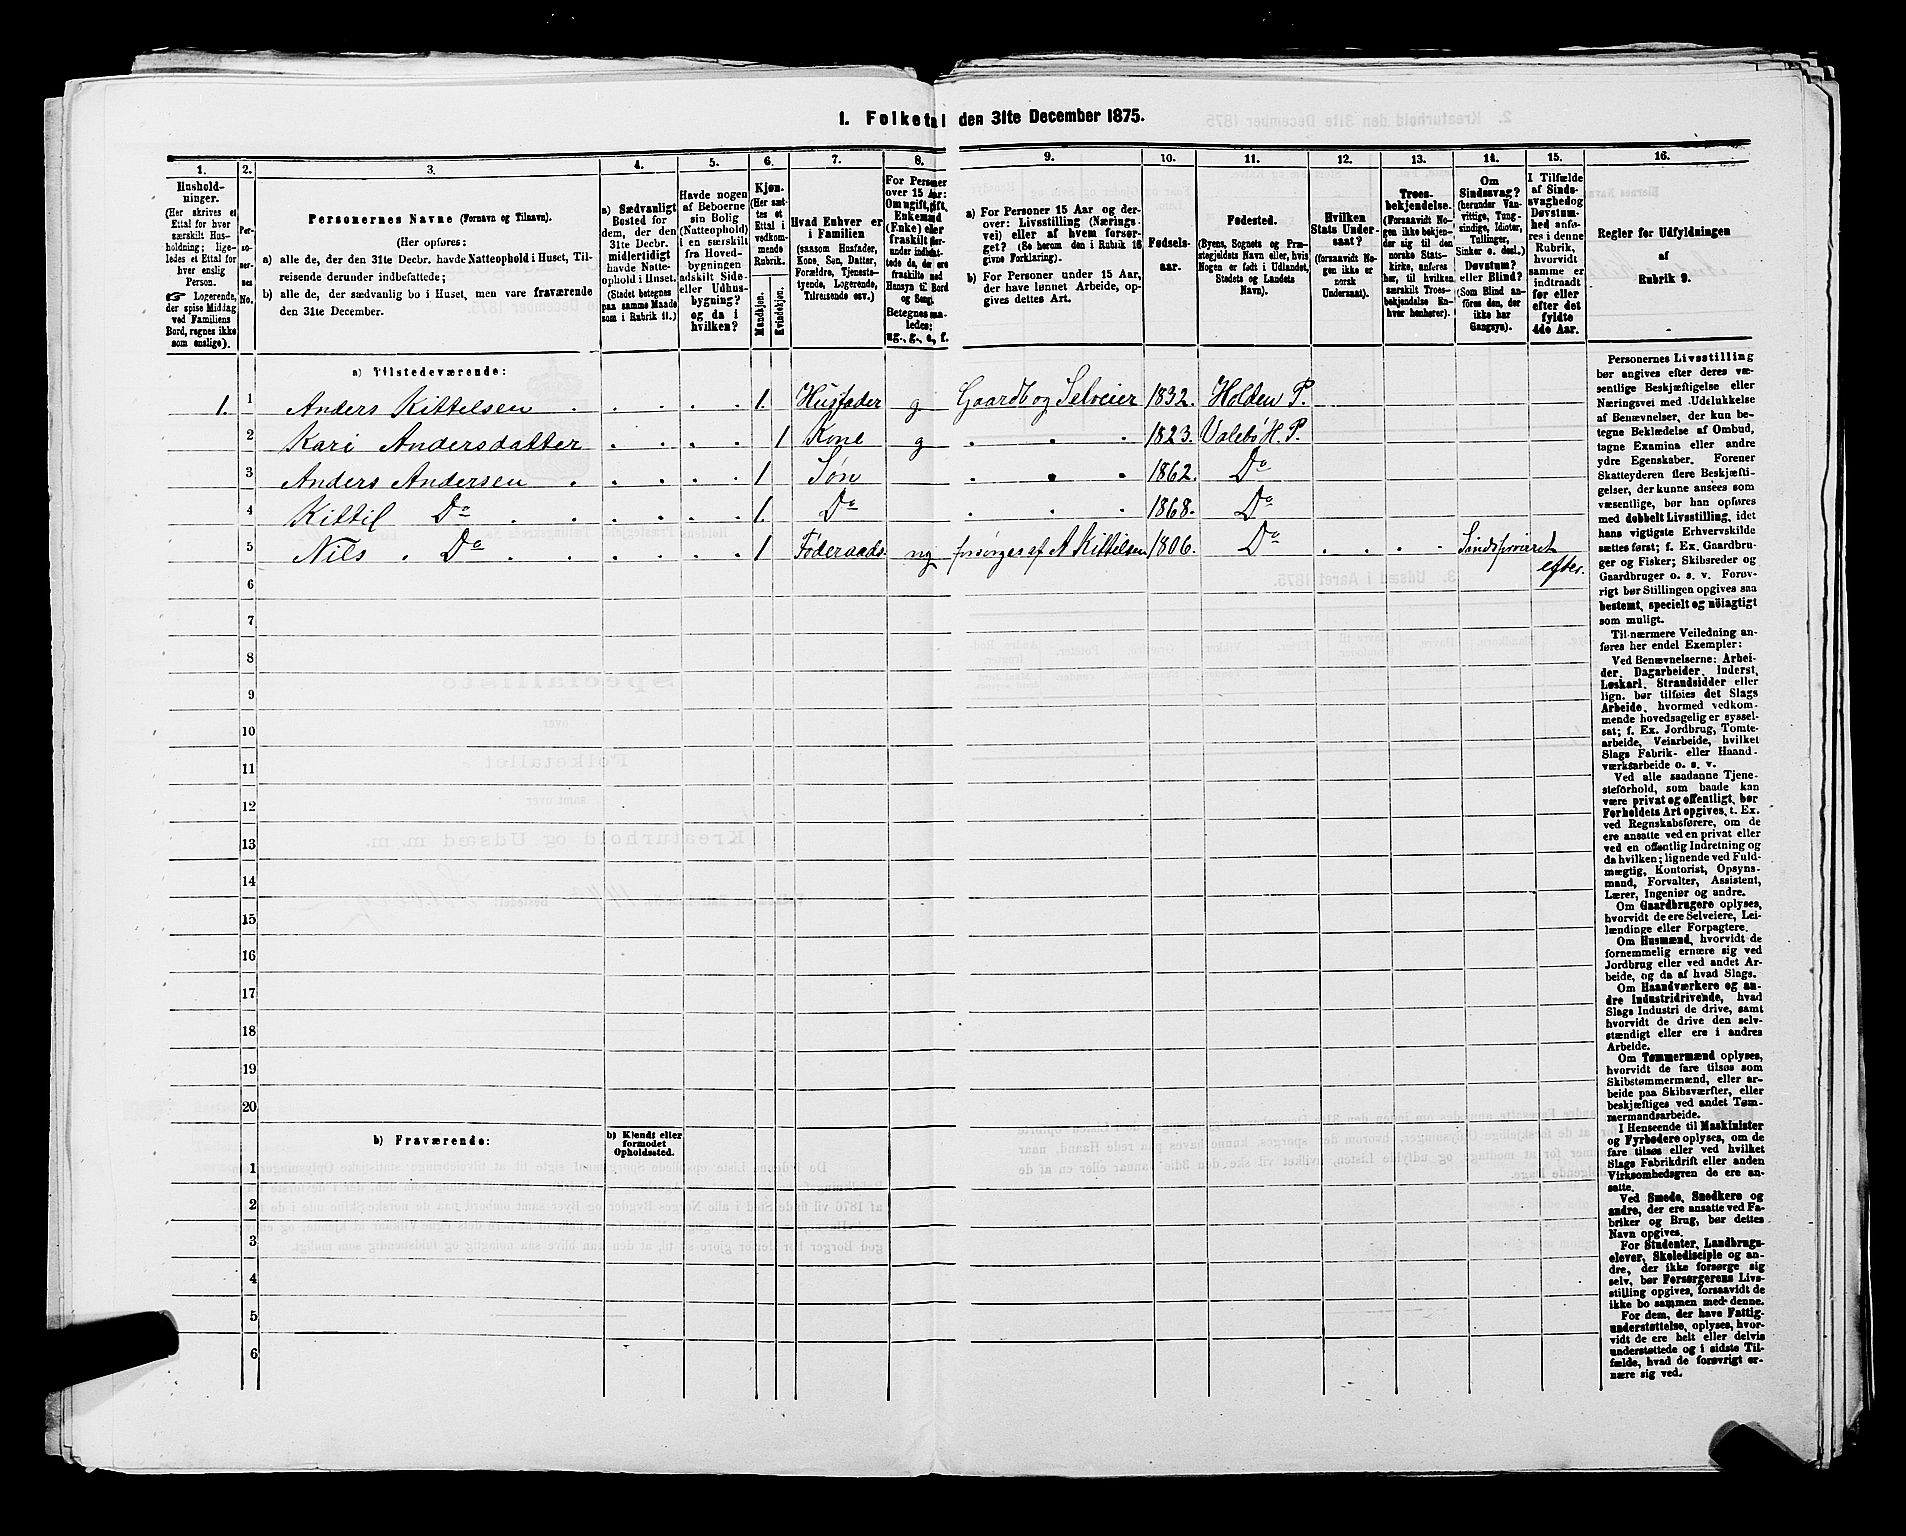 1. Folketal den 31te December 1875.
1. 2. 3. 4. 5. 6. 7. 8. 9. 10. 11. 12. 13. 14. 15. 16.
Hushold-
ninger.
(Her skrives et
Ettal for hver
særskilt Hus-
holdning; lige-
ledes et Ettal for
hver enslig
Person.
☞ Logerende,
der spise Middag
ved Familiens
Bord, regnes ikke
som enslige).
Per-
so-
ner-
nes
No.
Personernes Navne (Fornavn og Tilnavn).
(Her opføres:
a) alle de, der den 31te Decbr. havde Natteophold i Huset, Til-
reisende derunder indbefattede;
b) alle de, der sædvanlig bo i Huset, men vare fraværende
den 31te December.
a) Sædvanligt
Bosted for
dem, der den
31te Decbr.
midlertidigt
havde Natte-
ophold i Huset.
(Stedet betegnes
paa samme Maade
som i Rubrik 11.)
Havde nogen
af Beboerne
sin Bolig
(Natteophold)
i en særskilt
fra Hoved-
bygningen
adskilt Side-
eller Udhus-
bygning?
og da i
hvilken?
Kjøn.
(Her sæt-
tes et
Ettal i
vedkom-
mende
Rubrik.
Mandkjøn.
Kvindekjøn.
Hvad Enhver er
i Familien
(saasom Husfader,
Kone, Søn, Datter,
Forældre, Tjeneste-
tyende, Logerende,
Tilreisende osv.)
For Personer
over 15 Aar:
Om ugift, gift,
Enkemand
(Enke) eller
fraskilt (her-
under indbefat-
tede de, der ere
fraskilte med
Hensyn til Bord
og Seng).
Betegnes saa-
ledes:
ug., g., e., f.
a) For Personer 15 Aar og der-
over: Livsstilling (Nærings-
vei) eller af hvem forsør-
get? (Se herom den i Rubrik 16
givne Forklaring).
b) For Personer under 15 Aar,
der have lønnet Arbeide, op-
gives dettes Art.
Fødsels-
aar.
Fødested.
(Byens, Sognets og Præ-
stegjeldets Navn eller, hvis
Nogen er født i Udlandet,
Stedets og Landets
Navn).
Hvilken
Stats Under-
saat?
(forsaavidt No-
gen ikke er
norsk
Undersaat).
Troes-
bekjendelse.
(Forsaavidt No-
gen ikke bekjen-
der sig til den
norske Stats-
kirke, anføres
her, til hvilken
særskilt Troes-
bekjendelse En-
hver henhører).
Om
Sindssvag?
(herunder Van-
vittige, Tung-
sindige, Idioter,
Tullinger,
Sinker o. desl.)
Døvstum?
eller Blind?
(Som Blind an-
føres den, der
ikke har
Gangsyn).
I Tilfælde
af Sinds-
svaghed og
Døvstum-
hed anfø-
res i denne
Rubrik,
hvorvidt
samme er
indtraadt
før eller
efter det
fyldte
4de Aar.
Regler for Udfyldningen
af
Rubrik 9.
a) Tilstedeværende:
1. 1 Anders Kittelsen . . . . . 1. Husfader g Gaardb og Selveier 1832. Holden P.
2 Kari Andersdatter . . . . 1 Kone g . . . 1823. Valebø H. P.
3 Anders Andersen . . . . . 1 Søn . . . 1862. Do
4 Kittil Do . . . . . . 1. Do . . . 1868. Do
5 Nils . Do . . . . . . 1 Føderaads. ug forsørges af A Kittelsen 1806. Do . . . . Sindsforvirret
efter.
6
7
8
9
10
11
12
13
14
15
16
17
18
19
20
b) Fraværende:
b) Kjendt eller
formodet
Opholdssted.
1
2
3
4
5
6
Personernes Livsstilling
bør angives efter deres væ-
sentlige Beskjæftigelse eller
Næringsvei med Udelukkelse
af Benævnelser, der kun be-
tegne Beklædelse af Ombud,
tagne Examina eller andre
ydre Egenskaber. Forener
Skatteyderen flere Beskjæfti-
gelser, der kunne ansees som
væsentlige, bør han opføres
med dobbelt Livsstilling, idet
hans vigtigste Erhvervskilde
sættes først; f. Ex. Gaardbru-
ger og Fisker; Skibsreder og
Gaardbruger o. s. v. Forøv-
rigt bør Stillingen opgives saa
bestemt, specielt og nøiagtigt
som muligt.
Til nærmere Veiledning an-
føres her endel Exempler:
Ved Benævnelserne: Arbei-
der, Dagarbeider, Inderst,
Løskarl, Strandsidder eller
lign. bør tilføies det Slags
Arbeide, hvormed vedkom-
mende hovedsagelig er syssel-
sat; f. Ex. Jordbrug, Tomte-
arbeide, Veiarbeide, hvilket
Slags Fabrik- eller Haand-
værksarbeide o. s. v.
Ved alle saadanne Tjene-
steforhold, som baade kan
være privat og offentligt, bør
Forholdets Art opgives, t. Ex.
ved Regnskabsførere, om de
ere ansatte ved en privat eller
ved en offentlig Indretning og
da hvilken; lignende ved Fuld-
mægtig, Kontorist, Opsyns-
mand, Forvalter, Assistent,
Lærer, Ingeniør og andre.
Om Gaardbrugere oplyses,
hvorvidt de ere Selveiere, Lei-
lændinge eller Forpagtere.
Om Husmænd, hvorvidt de
fornemmelig ernære sig ved
Jordbrug eller ved andet Ar-
beide, og da af hvad Slags.
Om Haandværkere og an-
dre Industridrivende, hvad
Slags Industri de drive, samt
hvorvidt de drive den selv-
stændigt eller ere i andres
Arbeide.
Om Tømmermænd oplyses,
hvorvidt de fare tilsøs som
Skibstømmermænd, eller ar-
beide paa Skibsværfter, eller
beskjæftiges ved andet Tøm-
mermandsarbeide.
I Henseende til Maskinister
og Fyrbødere oplyses, om de
fare tilsøs eller ved hvilket
Slags Fabrikdrift eller anden
Virksomhedsgren de ere an-
satte.
Ved Smede, Snedkere og
andre, der ere ansatte ved Fa-
briker og Brug, bør dettes
Navn opgives.
For Studenter, Landbrugs-
elever, Skoledisciple og an-
dre, der ikke forsørge sig
selv, bør Forsørgerens Livs-
stilling opgives, forsaavidt de
ikke bo sammen med denne.
For dem, der have Fattig-
understøttelse, oplyses, hvor-
vidt de ere helt eller delvis
understøttede og i sidste Til-
fælde, hvad de forøvrigt er-
nære sig ved.